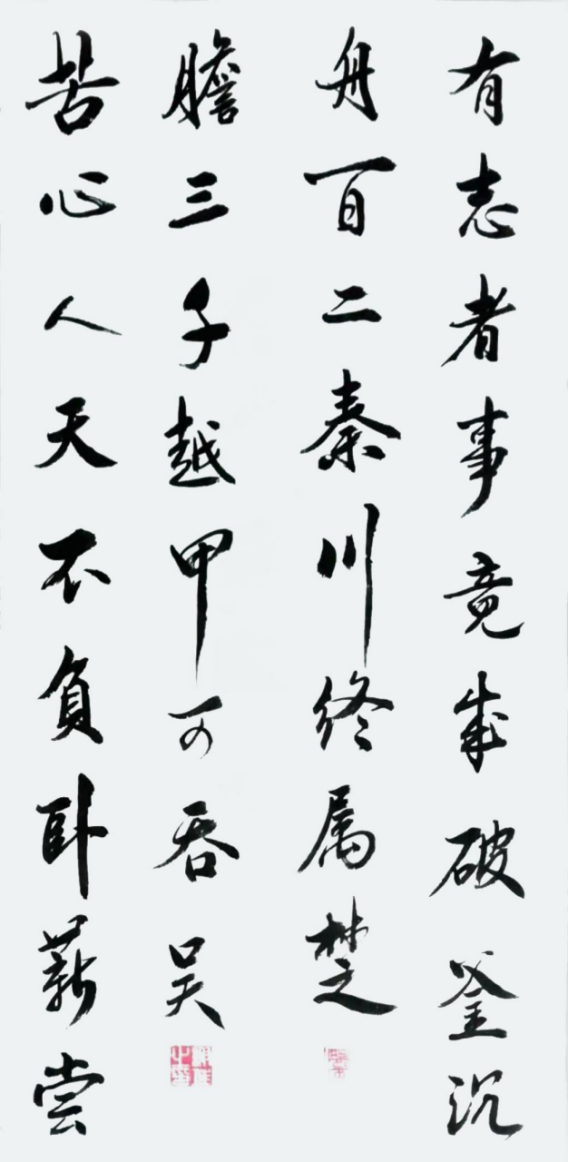 有志者事竟成破釜沉
舟百二秦川终属楚
苦心人天不負卧薪尝
膽三千越甲可吞吴